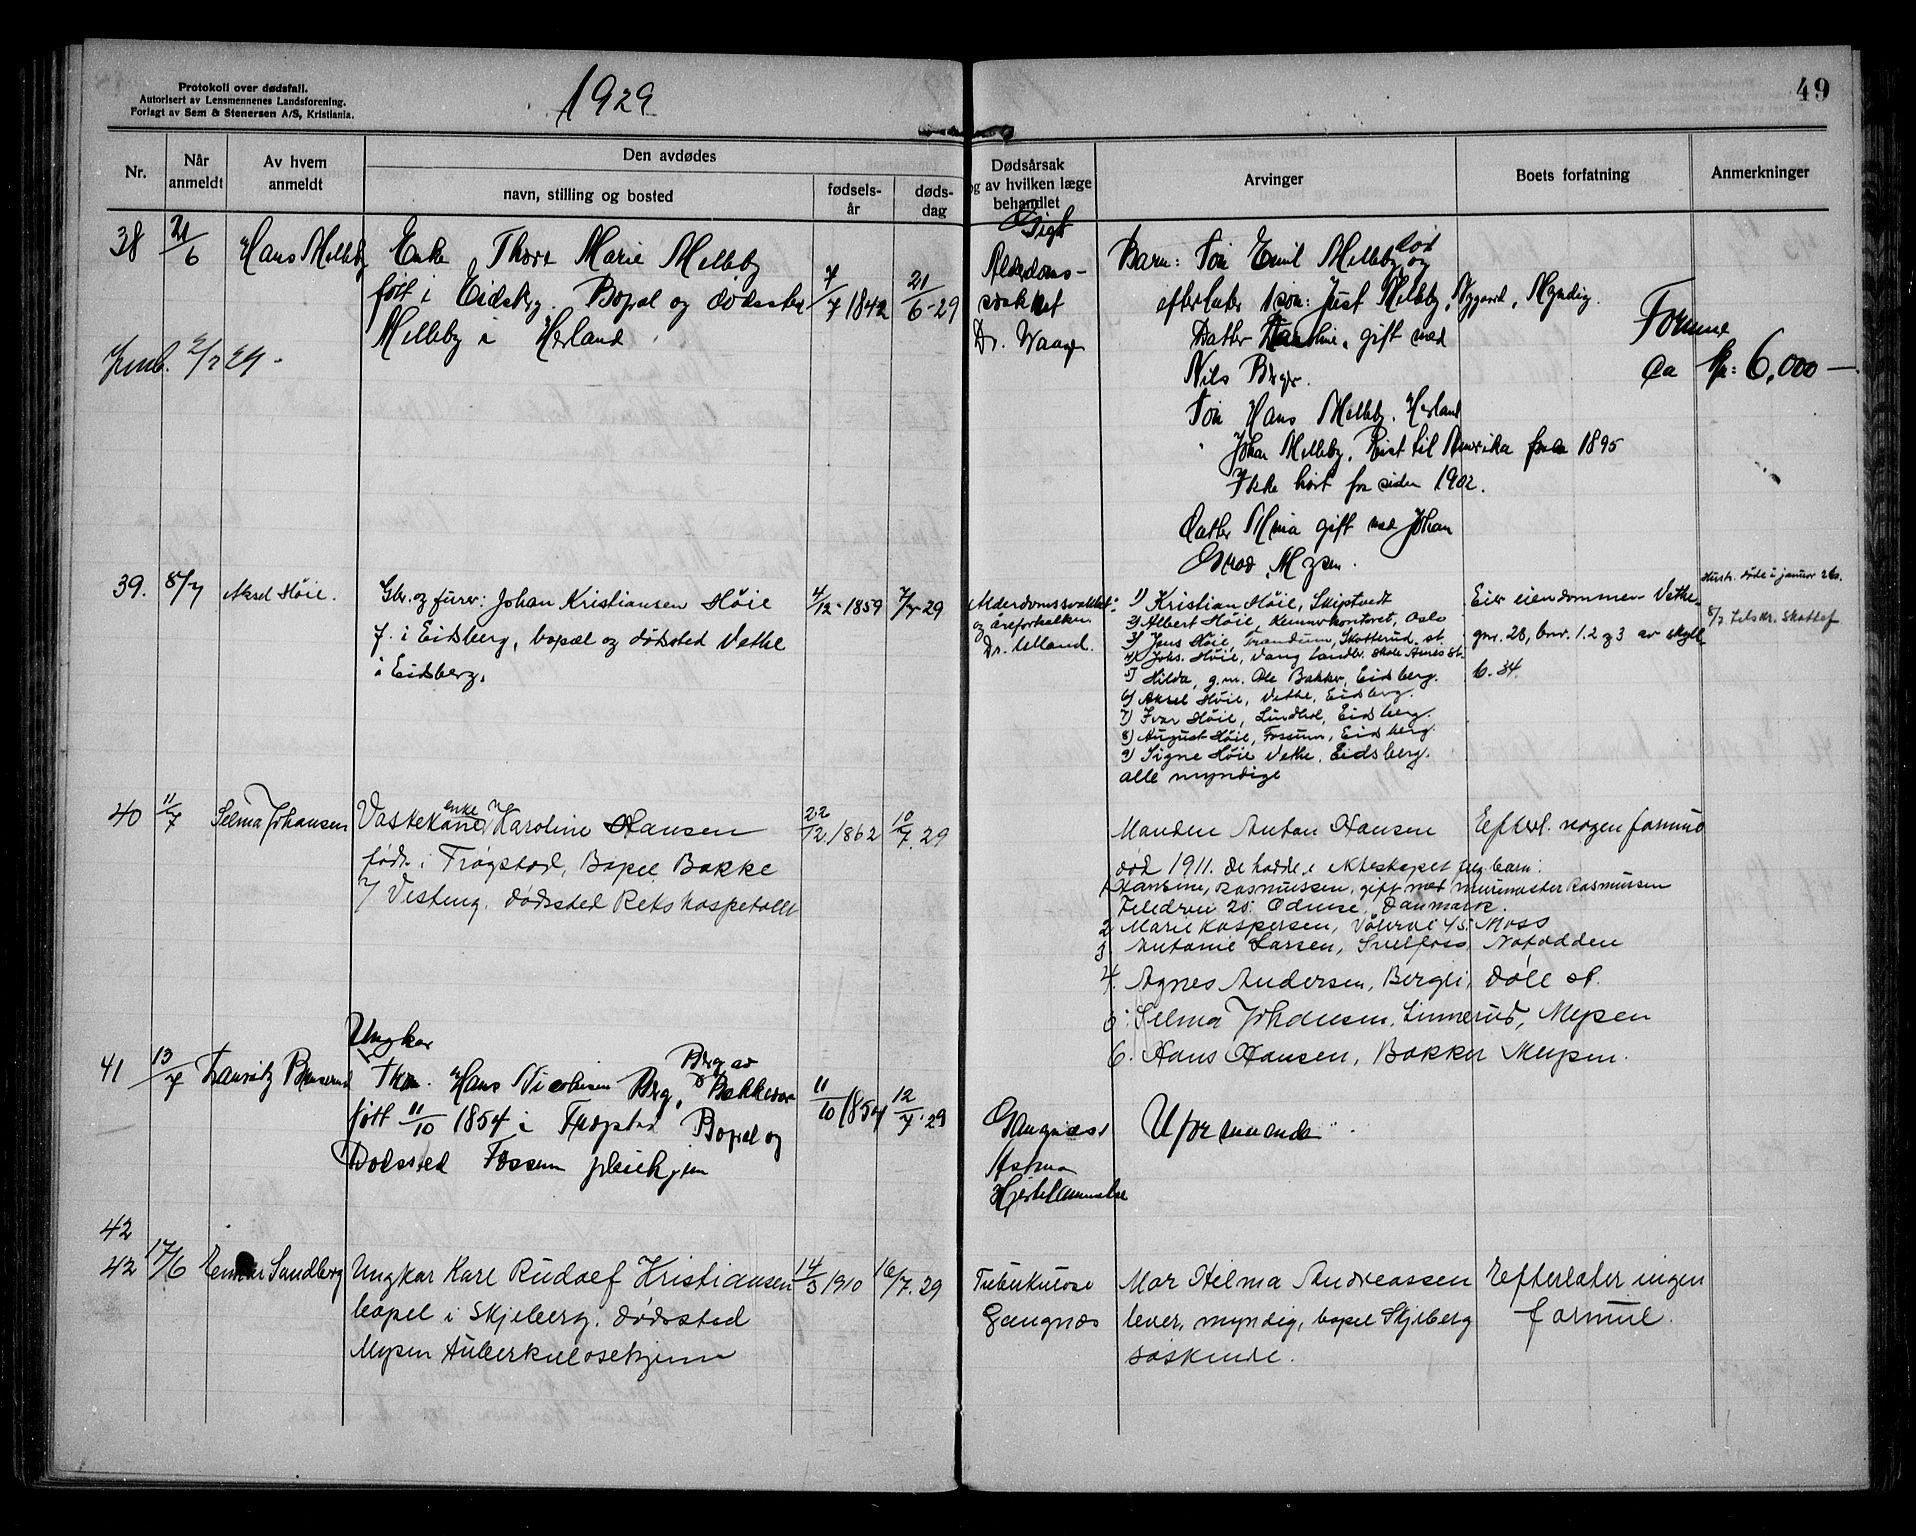 Protokoll over dødsfall.
Autorisert av Lensmennenes Landsforening.
Forlagt av Sem & Stenersen A/S, Kristiania.
1929
49
Nr.
Når anmeldt
Av hvem anmeldt
Den avdødes
navn, stilling og bosted
fødsels-år
døds-dag
Dødsårsak
og av hvilken læge
behandlet
Arvinger
Boets forfatning
Anmerkninger
38 21/6 Hans Melleby
Enke Thore Marie Melleby
født i Eidsberg. Bopæl og dødssted
Melleby i Herland
7/7 1842
21/6-29
Gigt
Alderdoms-
svakhet
Dr. Waage
Barn: Søn Emil Melleby død og
efterlater 1 søn: Just Melleby, Nygaard, Myndig.
Datter Karoline, gift med
Nils Berger.
Søn Hans Melleby, Herland
" Johan Melleby. Reist til Amerika før 1895
Ikke hørt fra siden 1902.
Datter Mina gift med Johan
Mysen.
Formue
ca kr: 6.000 —
39. 8/7 Aksel Høie.
Gbr. og furer: Johan Kristiansen Høie
f. i Eidsberg, bopæl og dødssted Vethe
i Eidsberg.
4/12-1859
7/7-29
Alderdomssvakhet
og åreforkalkn.
Dr. Ulland.
1) Kristian Høie, Skiptvedt
2) Albert Høie, Kemnerkontoret, Oslo
3) Jens Høie, Trandum, Skotterud st.
4) Johs. Høie, Vang landbr. skole Arnes st.
5) Hilda, g.m. Ole Bakker, Eidsberg.
6) Aksel Høie, Vethe, Eidsberg.
7) Ivar Høie, Lindhol, Eidsberg.
8) August Høie, Fossum, Eidsberg.
9) Signe Høie Vethe, Eidsberg.
alle myndige
Eier eiendommen Vethe
gnr. 28, bnr. 1. 2 og 3 av skyld
6.34.
Hustr. døde i januar 26.
8/7 tilskr. Skattef
40 11/7 Selma Johansen
Vaskekone enke Karoline Hansen
født i Trøgstad, Bopel Bakke
u/ Vesteng. dødssted Rikshospetalet
22/12 1862
10/7. 29
Manden Anton Hansen
død 1911. de hadde i ekteskapet flg. barn:
1 Hansine, Rasmussen, gift med murmester Rasmussen
25. Odense, Danmark.
2 Marie Kaspersen, Vålervei 45. Moss
3 Antonie Larsen, Svelfoss Notodden
4. Agnes Andersen, Bergli, Døle st.
5. Selma Johansen, Linnerud, Mysen
6. Hans Hansen, Bakker Mysen.
Efterl. nogen formue
41 13/7 Lauritz
Ungkar
Hans Nicolaisen Berg, Berg av Bakke
født 11/10 1854 i Trøgstad Bopæl og
Dødssted Fossum pleiehjem
11/10 1854
12/7-29
Gangnæs
Astma
Hjertelammelse
Uformuende
42
42 17/6 Einar Sundberg
Ungkar Karl Rudolf Kristiansen
bopel i Skjeberg. dødssted
Mysen tuberkulosehjem
14/3 1910
16/7. 29
Tuberkulose
Gangnæs
Mor Hilma Andreassen
lever, myndig, bopel Skjeberg
søskende.
Efterlater ingen
formue.